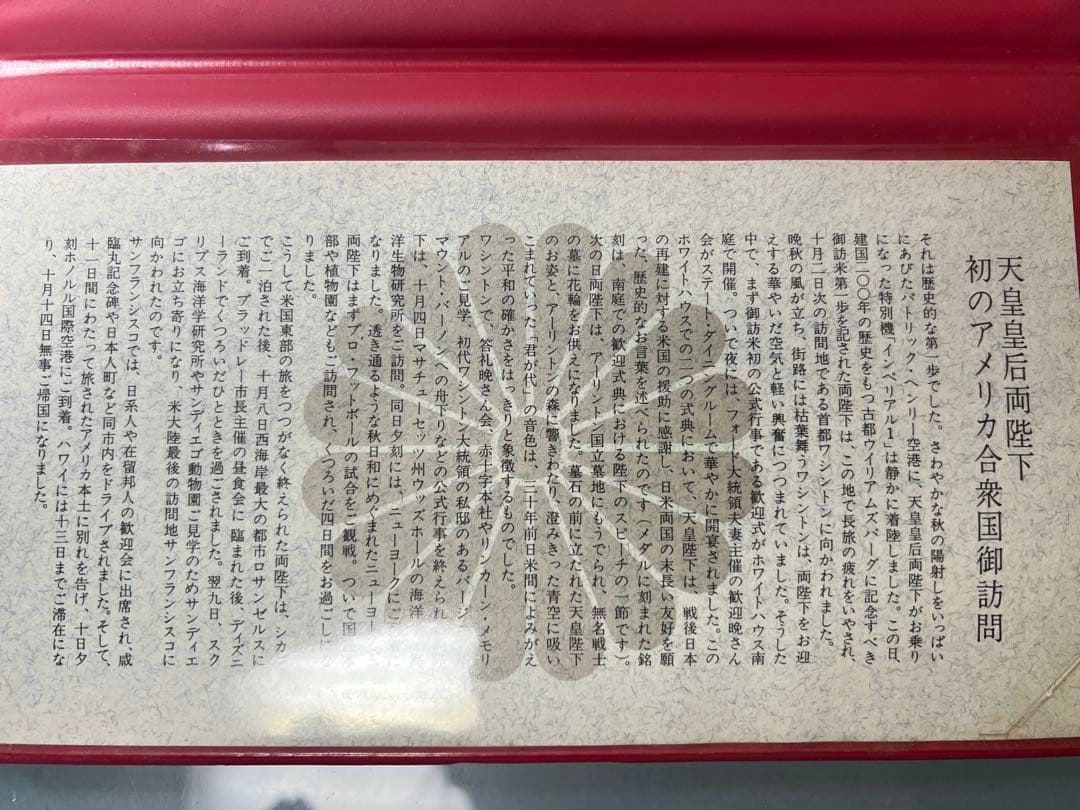 天皇皇后両陛下
初のアメリカ合衆国御訪問
それは歴史的な第一歩でした。さわやかな秋の陽射しをいっぱい
にあびたパトリック・ヘンリー空港に、天皇皇后両陛下がお乗り
になった特別機「インペリアル1」は静かに着陸しました。この日、
建国二〇〇年の歴史をもつ古都ウイリアムズバーグに記念すべき
御訪米第一歩を記された両陛下は、この地で長旅の疲れをいやされ、
十月二日次の訪問地である首都ワシントンに向かわれました。
晩秋の風が立ち、街路には枯葉舞うワシントンは、両陛下をお迎
えする華やいだ空気と軽い興奮につつまれていました。そうした
中で、まず御訪米初の公式行事である歓迎式がホワイトハウス南
庭で開催。ついで夜には、フォード大統領夫妻主催の歓迎晩さん
会がステート・ダイニングルームで華やかに開宴されました。この
ホワイトハウスでの二つの式典において、天皇陛下は、戦後日本
の再建に対する米国の援助に感謝し、日米両国の末長い友好を願
った、歴史的なお言葉を述べられたのです(メダルに刻まれた銘
刻は、南庭での歓迎式典における陛下のスピーチの一節です)。
次の日両陛下は、アーリントン国立墓地にもうでられ、無名戦士
の墓に花輪をお供えになりました。墓石の前に立たれた天皇陛下
のお姿と、アーリントンの森に響きわたり、澄みきった青空に吸い
こまれていった「君が代」の音色は、三十年前日米間によみがえ
った平和の確かさをはっきりと象徴するものでした。
ワシントンで、答礼晩さん会、赤十字本社やリンカーン・メモリ
アルのご見学、初代ワシントン大統領の私邸のあるバージ
マウント・バーノンへの舟下りなどの公式行事を終えられ
下は、十月四日マサチューセッツ州ウッズホールの海洋
洋生物研究所をご訪問。同日夕刻には、ニューヨークにご
なりました。透き通るような秋日和にめぐまれたニューヨー
両陛下はまずプロ・フットボールの試合をご観戦。ついで国
部や植物園などもご訪問され、くつろいだ四日間をお過ごし
りました。
こうして米国東部の旅をつつがなく終えられた両陛下は、シカゴ
でご一泊された後、十月八日西海岸最大の都市ロサンゼルスに
ご到着。ブラッドレー市長主催の昼食会に臨まれた後、ディズニ
ーランドでくつろいだひとときを過ごされました。翌九日、スク
リプス海洋学研究所やサンディエゴ動物園ご見学のためサンディエ
ゴにお立ち寄りになり、米大陸最後の訪問地サンフランシスコに
向かわれたのです。
サンフランシスコでは、日系人や在留邦人の歓迎会に出席され、咸
臨丸記念碑や日本人町など同市内をドライブされました。そして、
十一日間にわたって旅されたアメリカ本土に別れを告げ、十日夕
刻ホノルル国際空港にご到着。ハワイには十三日までご滞在にな
り、十月十四日無事ご帰国になりました。